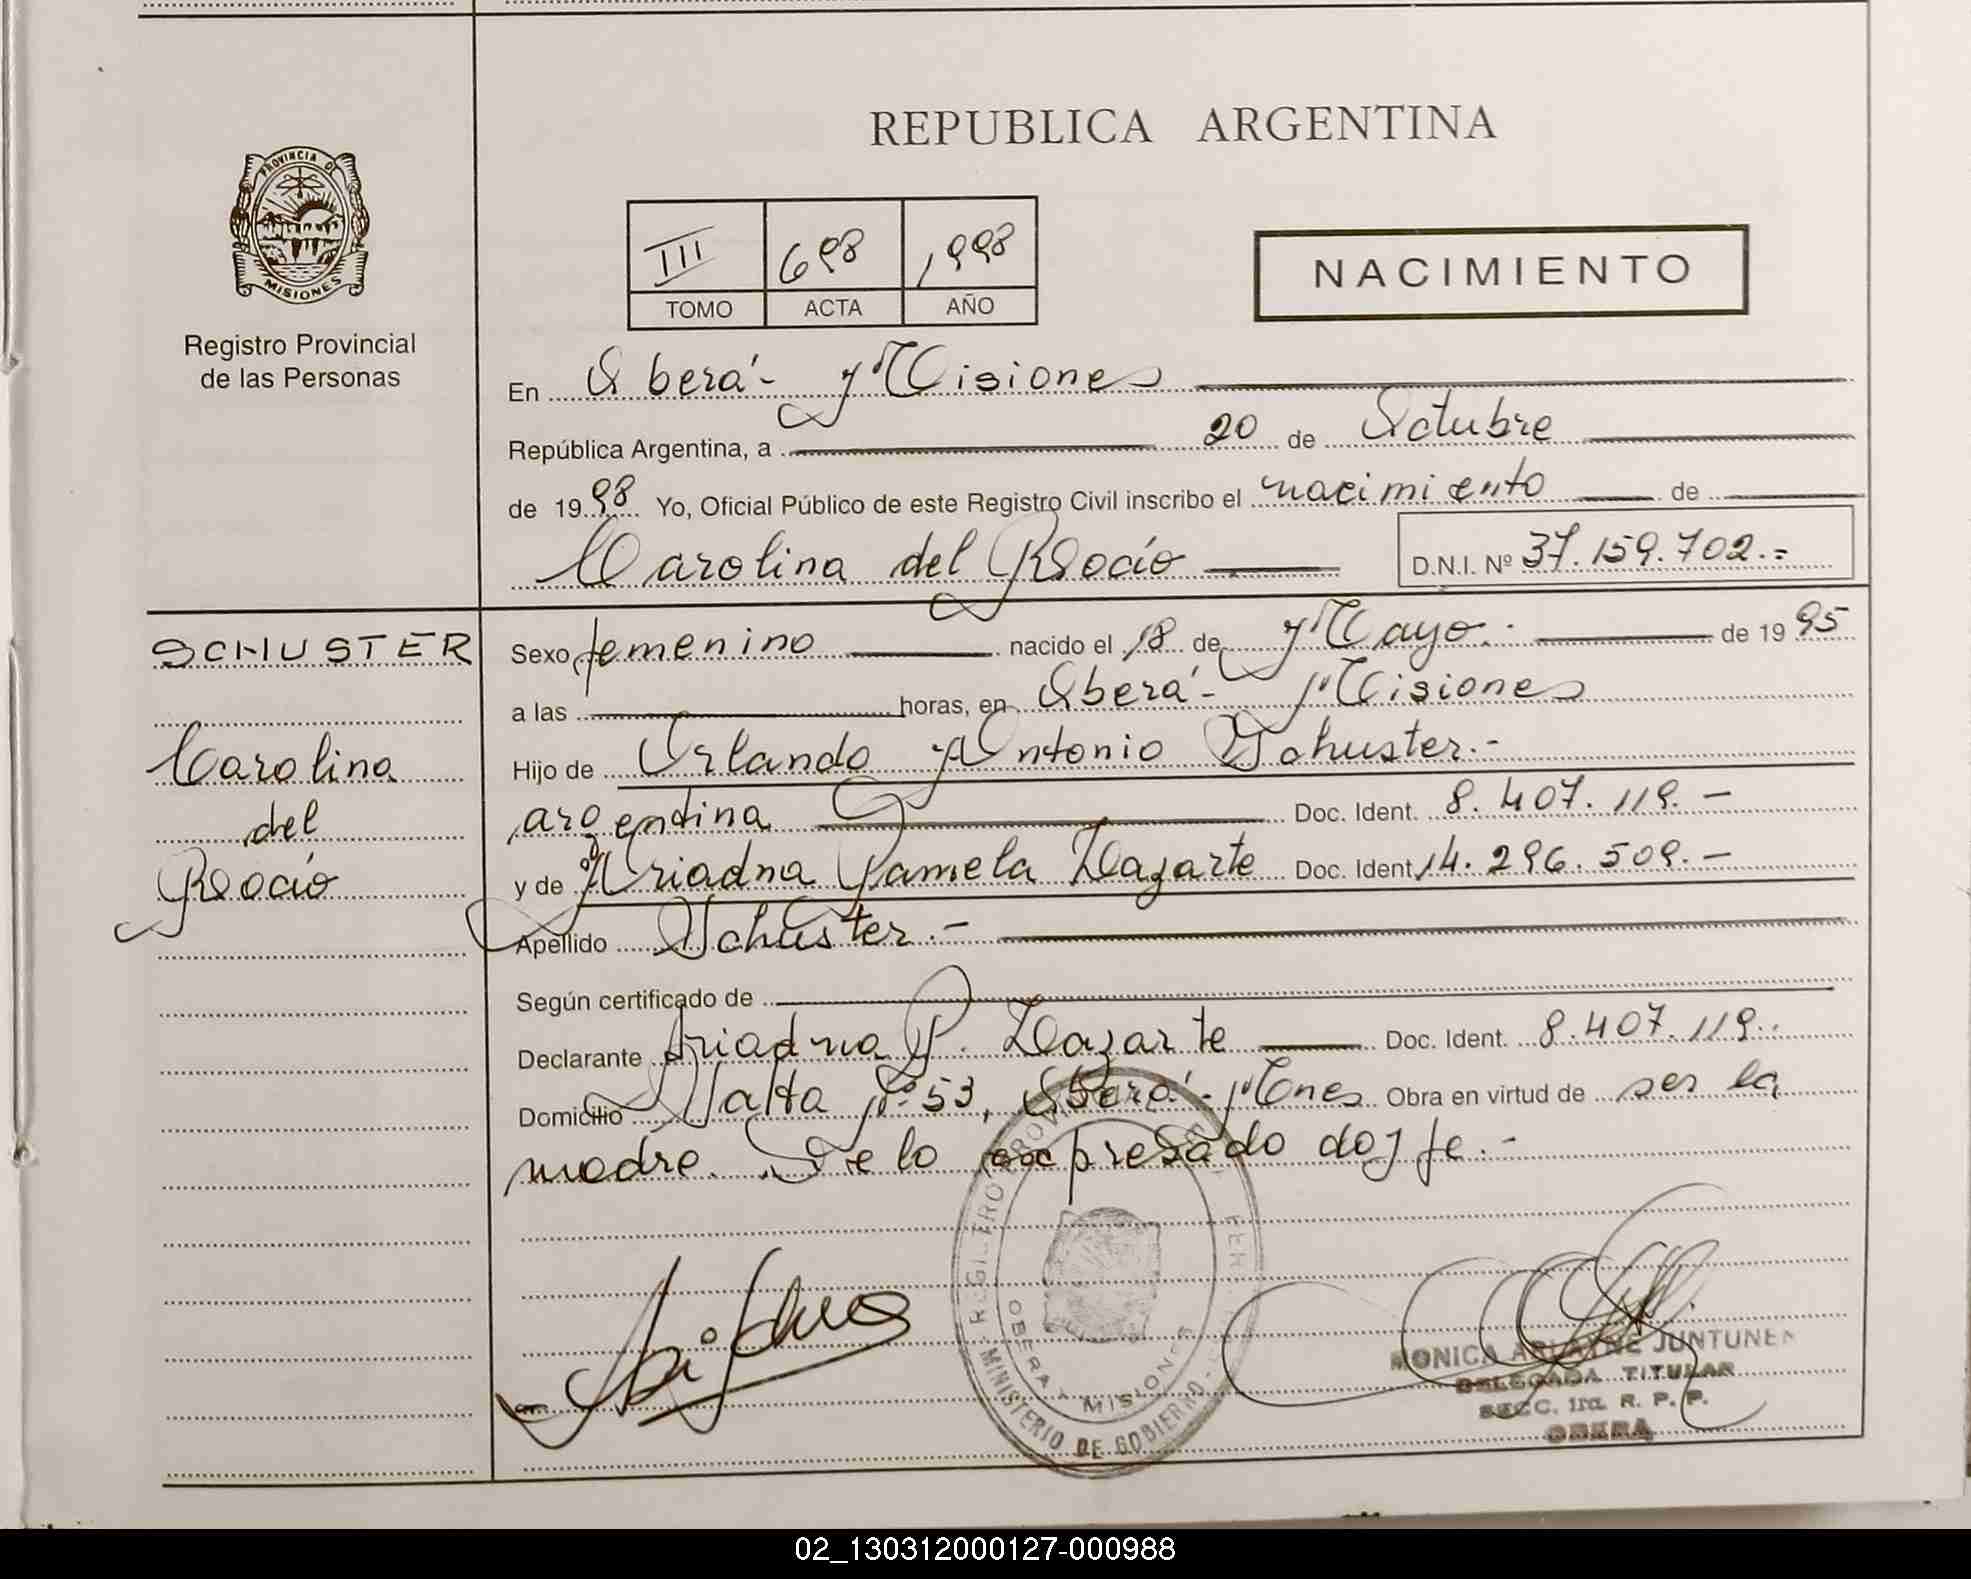 REPUBLICA ARGENTINA
PROVINCIA DE
MISIONES
Registro Provincial
de las Personas
III 698 1998
TOMO ACTA AÑO
NACIMIENTO
En Oberá- Misiones
República Argentina, a 20 de Octubre
de 1998 Yo, Oficial Público de este Registro Civil inscribo el nacimiento de
Carolina del Rocío
D.N.I. Nº 37.159.702.=
SCHUSTER
Carolina
del
Rocío
Sexo femenino nacido el 18 de Mayo.- de 1995
a las horas, en Oberá- Misiones
Hijo de Orlando Antonio Schuster.-
argentina Doc. Ident. 8.407.119.-
y de Ariadna Pamela Dazarte Doc. Ident 14.296.509.-
Apellido Schuster.-
Según certificado de
Declarante Ariadna P. Dazarte Doc. Ident. 8.407.119.-
Domicilio Salta Nº 53, Oberá- Mnes Obra en virtud de ser la
madre. De lo expresado doy fe.-
OBERA MISIONES
MINISTERIO DE GOBIERNO
MONICA ARLAYNE JUNTUNEN
DELEGADA TITULAR
SECC. 1ra. R. P. P.
OBERA
02_130312000127-000988